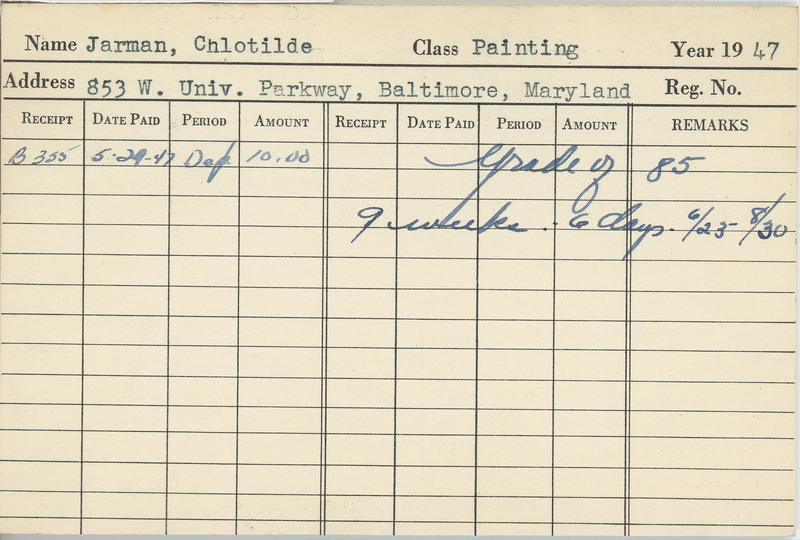 Name Jarman, Chlotilde Class Painting Year 19 47
Address 853 W. Univ. Parkway, Baltimore, Maryland Reg. No.
RECEIPT DATE PAID PERIOD AMOUNT RECEIPT DATE PAID PERIOD AMOUNT REMARKS
B 355 5-29-47 Dep. 10.00 Grade of 85
9 weeks - 6 days. 6/23 - 8/30